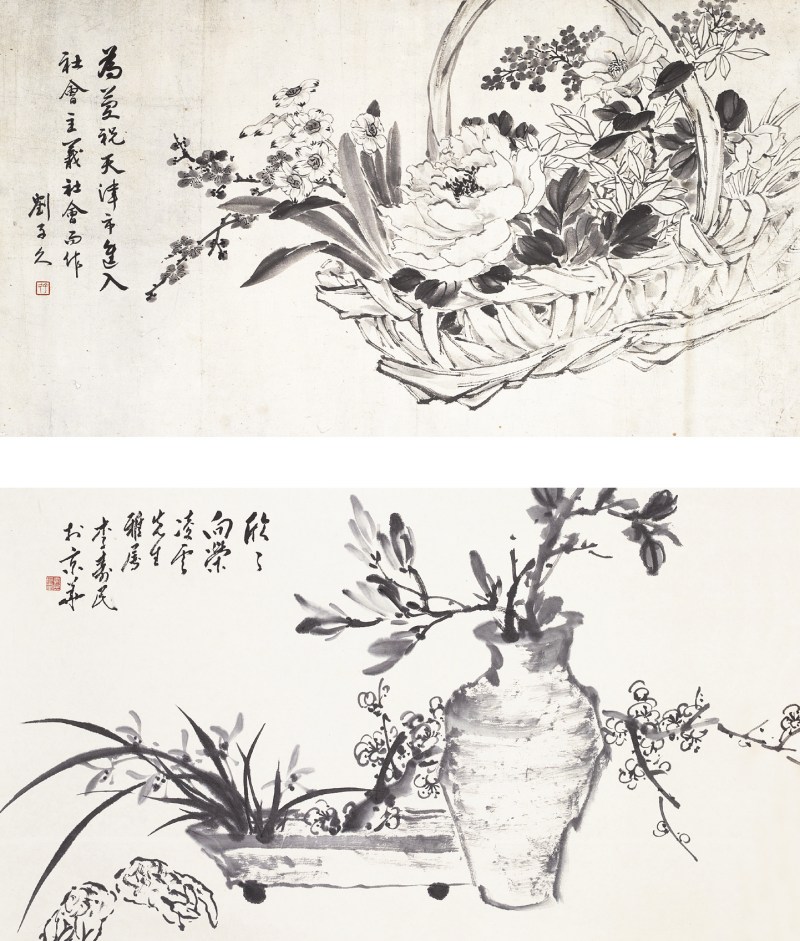 為慶祝天津市進入
社會主義社會而作
劉子久
欣々
向榮
凌雲
先生
雅屬
李壽民
於京華